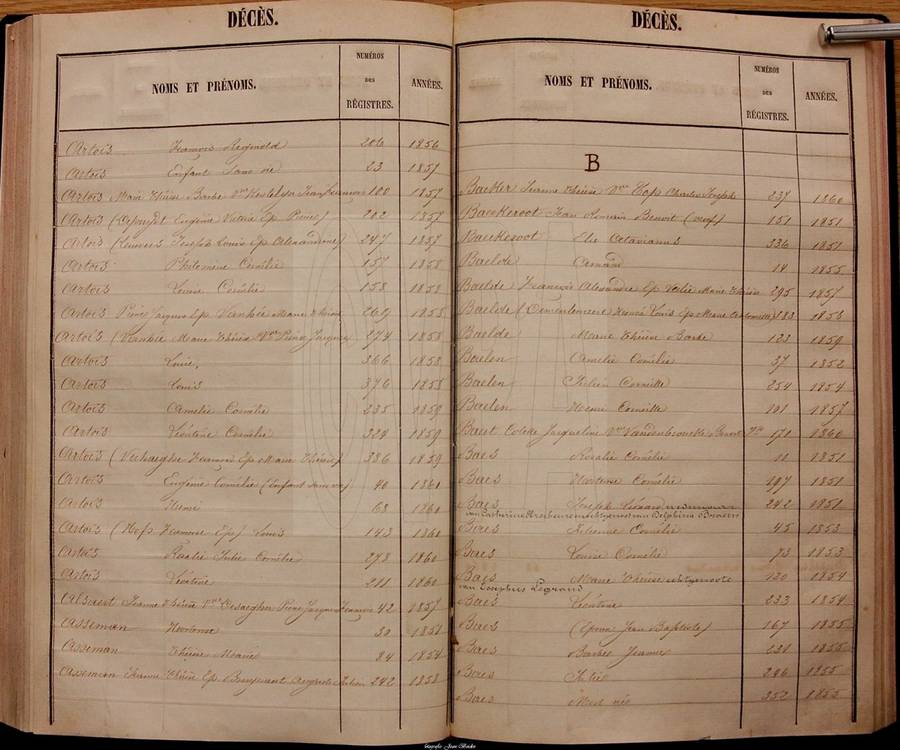 DÉCÈS.
NOMS ET PRÉNOMS.
NUMÉROS
des
RÉGISTRES.
ANNÉES.
Artois François Reginald 206 1856
Artois Enfant Sans vie 23 1857
Artois Marie Thérèse Barbe 188 1857
Artois Eugénie Valerie Ep. Pierre) 202 1857
Artois Joseph Louis Ep. Alexandrine) 247 1857
Artois Philomène Cornélie 157 1858
Artois Louise Cornélie 158 1858
Artois Pierre Jaques Ep. Vanhée Marie Thérèse 269 1858
Artois (Vanhée Marie Thérèse Vve Pierre Jaques) 274 1858
Artois Louise. 366 1858
Artois Louis 376 1858
Artois Amelie Cornélie 235 1859
Artois Léontine Cornélie 324 1859
Artois (Verhaeghe François Ep. Marie Thérèse) 386 1859
Artois Eugénie Cornélie (Enfant sans vie) 40 1860
Artois 68 1860
Artois (Hofs Ep.) Louis 143 1860
Artois Rosalie Julie Cornélie 273 1860
Artois Léontine 211 1860
Jeanne Thérèse Vve Pierre Jaques François 42 1857
Asseman Hortense 30 1851
Asseman Thérèse Marie 84 1854
Asseman Jeanne Thérèse Ep. Auguste Julien 242 1858
DÉCÈS.
NOMS ET PRÉNOMS.
NUMÉROS
des
RÉGISTRES.
ANNÉES.
B
Thérèse Vve Hofs Charles Joseph 237 1860
Baeckeroot Jean Benoit 151 1851
Baeckeroot Elie Octavianus 336 1851
Baelde Amand 14 1855
Baelde François Alexandre Ep. Marie Thérèse 295 1857
Baelde Louis Ep. Marie 183 1858
Baelde Marie Thérèse Barbe 123 1859
Baelen Amelie Cornélie 37 1852
Baelen Julien Corneille 254 1854
Baelen Henri Corneille 101 1857
Baert Colette Jacqueline Vve 171 1860
Baes Rosalie Cornélie 11 1851
Baes Hortense Cornélie 197 1851
Baes Joseph 242 1851
Baes Julienne Cornélie 45 1853
Baes Louise Cornélie 73 1853
Baes Marie Thérèse echtgenoote 130 1854
van Josephus Legrand
Baes Léontine 233 1854
Baes Jean Baptiste) 167 1855
Baes Barbe Jeanne 231 1855
Baes Julie 246 1855
Baes Mort née 352 1855